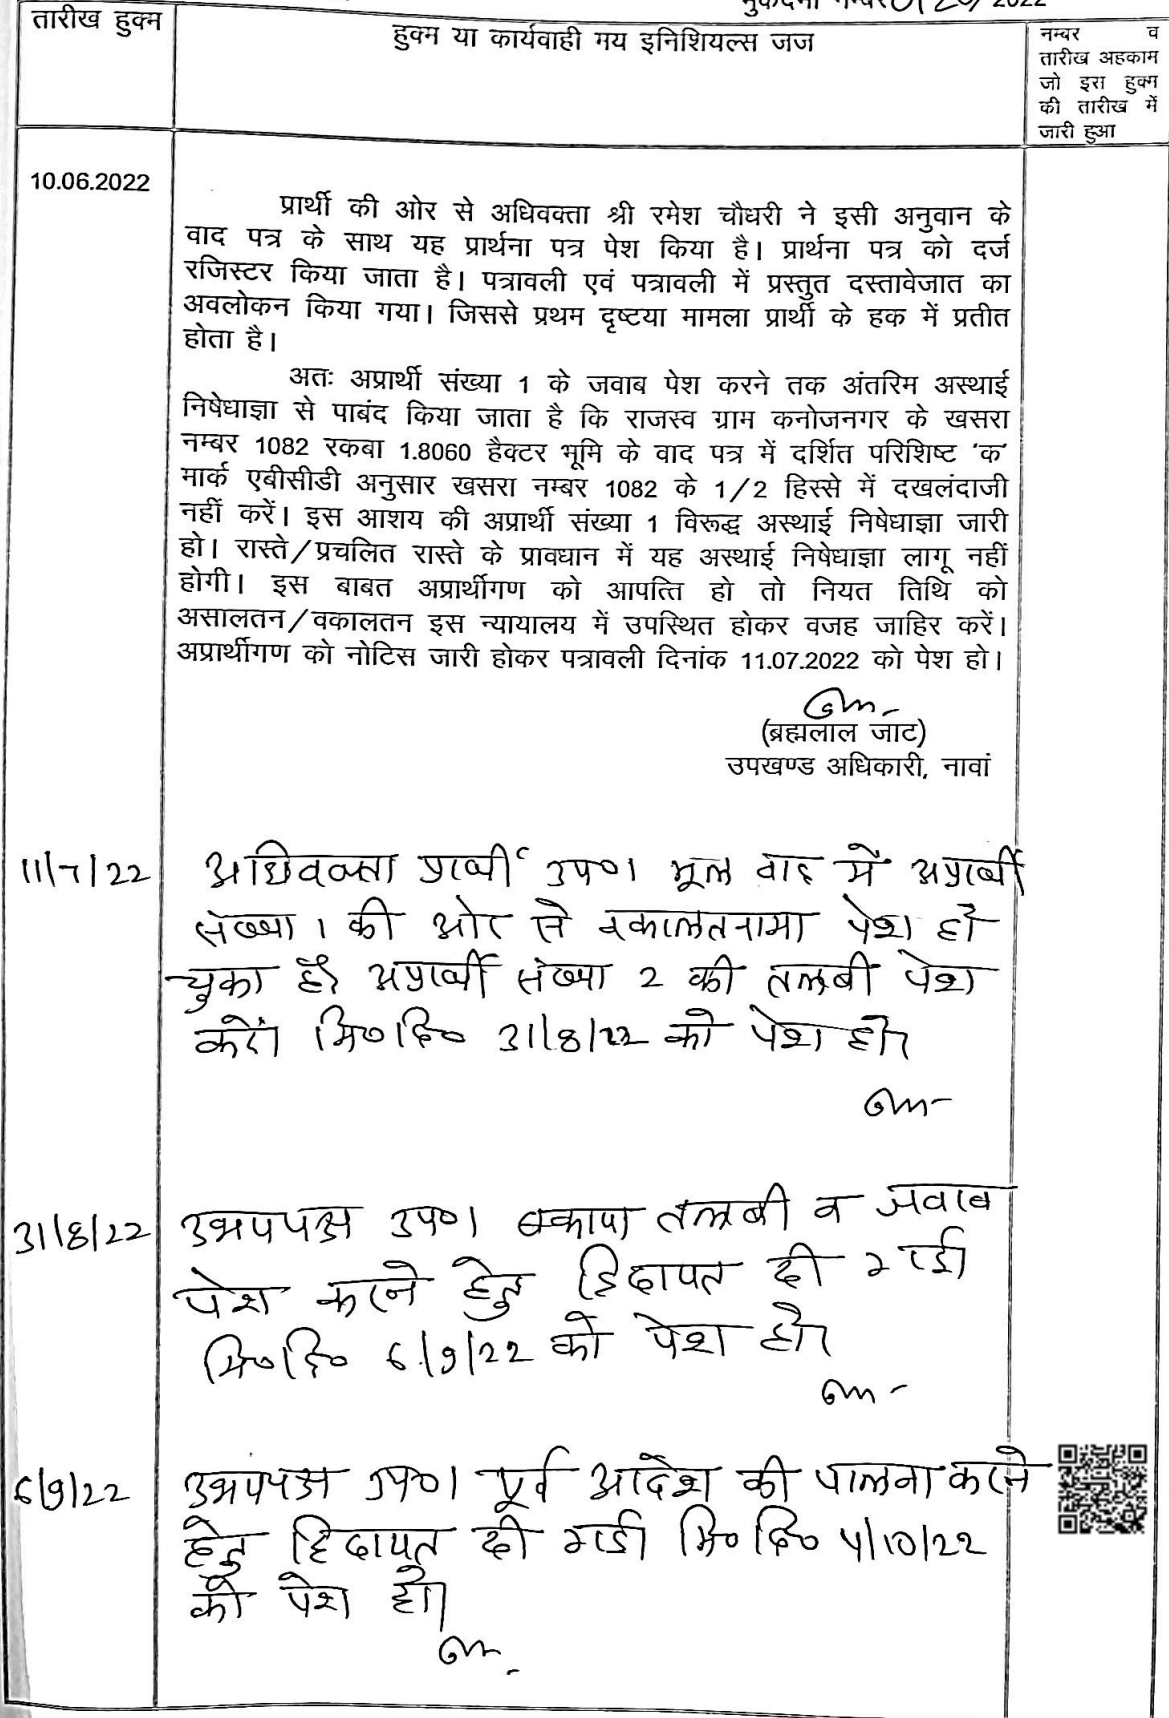 तारीख हुक्म
हुक्म या कार्यवाही मय इनिशियल्स जज
नम्बर व
तारीख अहकाम
जो इस हुक्म
की तारीख में
जारी हुआ
10.06.2022
प्रार्थी की ओर से अधिवक्ता श्री रमेश चौधरी ने इसी अनुवान के
वाद पत्र के साथ यह प्रार्थना पत्र पेश किया है। प्रार्थना पत्र को दर्ज
रजिस्टर किया जाता है। पत्रावली एवं पत्रावली में प्रस्तुत दस्तावेजात का
अवलोकन किया गया। जिससे प्रथम दृष्टया मामला प्रार्थी के हक में प्रतीत
होता है।
अतः अप्रार्थी संख्या 1 के जवाब पेश करने तक अंतरिम अस्थाई
निषेधाज्ञा से पाबंद किया जाता है कि राजस्व ग्राम कनोजनगर के खसरा
नम्बर 1082 रकबा 1.8060 हैक्टर भूमि के वाद पत्र में दर्शित परिशिष्ट 'क'
मार्क एबीसीडी अनुसार खसरा नम्बर 1082 के 1/2 हिस्से में दखलंदाजी
नहीं करें। इस आशय की अप्रार्थी संख्या 1 विरूद्ध अस्थाई निषेधाज्ञा जारी
हो। रास्ते/प्रचलित रास्ते के प्रावधान में यह अस्थाई निषेधाज्ञा लागू नहीं
होगी। इस बाबत अप्रार्थीगण को आपत्ति हो तो नियत तिथि को
असालतन/वकालतन इस न्यायालय में उपस्थित होकर वजह जाहिर करें।
अप्रार्थीगण को नोटिस जारी होकर पत्रावली दिनांक 11.07.2022 को पेश हो।
(ब्रह्मलाल जाट)
उपखण्ड अधिकारी, नावां
11/7/22 अधिवक्ता प्रार्थी उप०। मूल वाद में अप्रार्थी
संख्या 1 की ओर से वकालतनामा पेश हो
चुका है। अप्रार्थी संख्या 2 की तलबी पेश
करें। मि०दि० 31/8/22 को पेश हो।
31/8/22 उभयपक्ष उप०। बकाया तलबी व जवाब
पेश करने हेतु हिदायत दी गई।
मि०दि० 6/9/22 को पेश हो।
6/9/22 उभयपक्ष उप०। पूर्व आदेश की पालना करने
हेतु हिदायत दी गई। मि० दि० 4/10/22
को पेश हो।